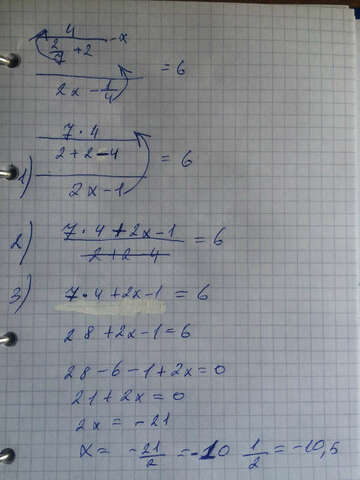 4
2/7 + 2 - x
2x - 1/4 = 6
1) 7 · 4
2 + 2 - 4 = 6
2x - 1
2) 7 · 4 + 2x - 1 = 6
2 + 2 - 4
3) 7 · 4 + 2x - 1 = 6
28 + 2x - 1 = 6
28 - 6 - 1 + 2x = 0
21 + 2x = 0
2x = -21
x = -21/2 = -10 1/2 = -10,5